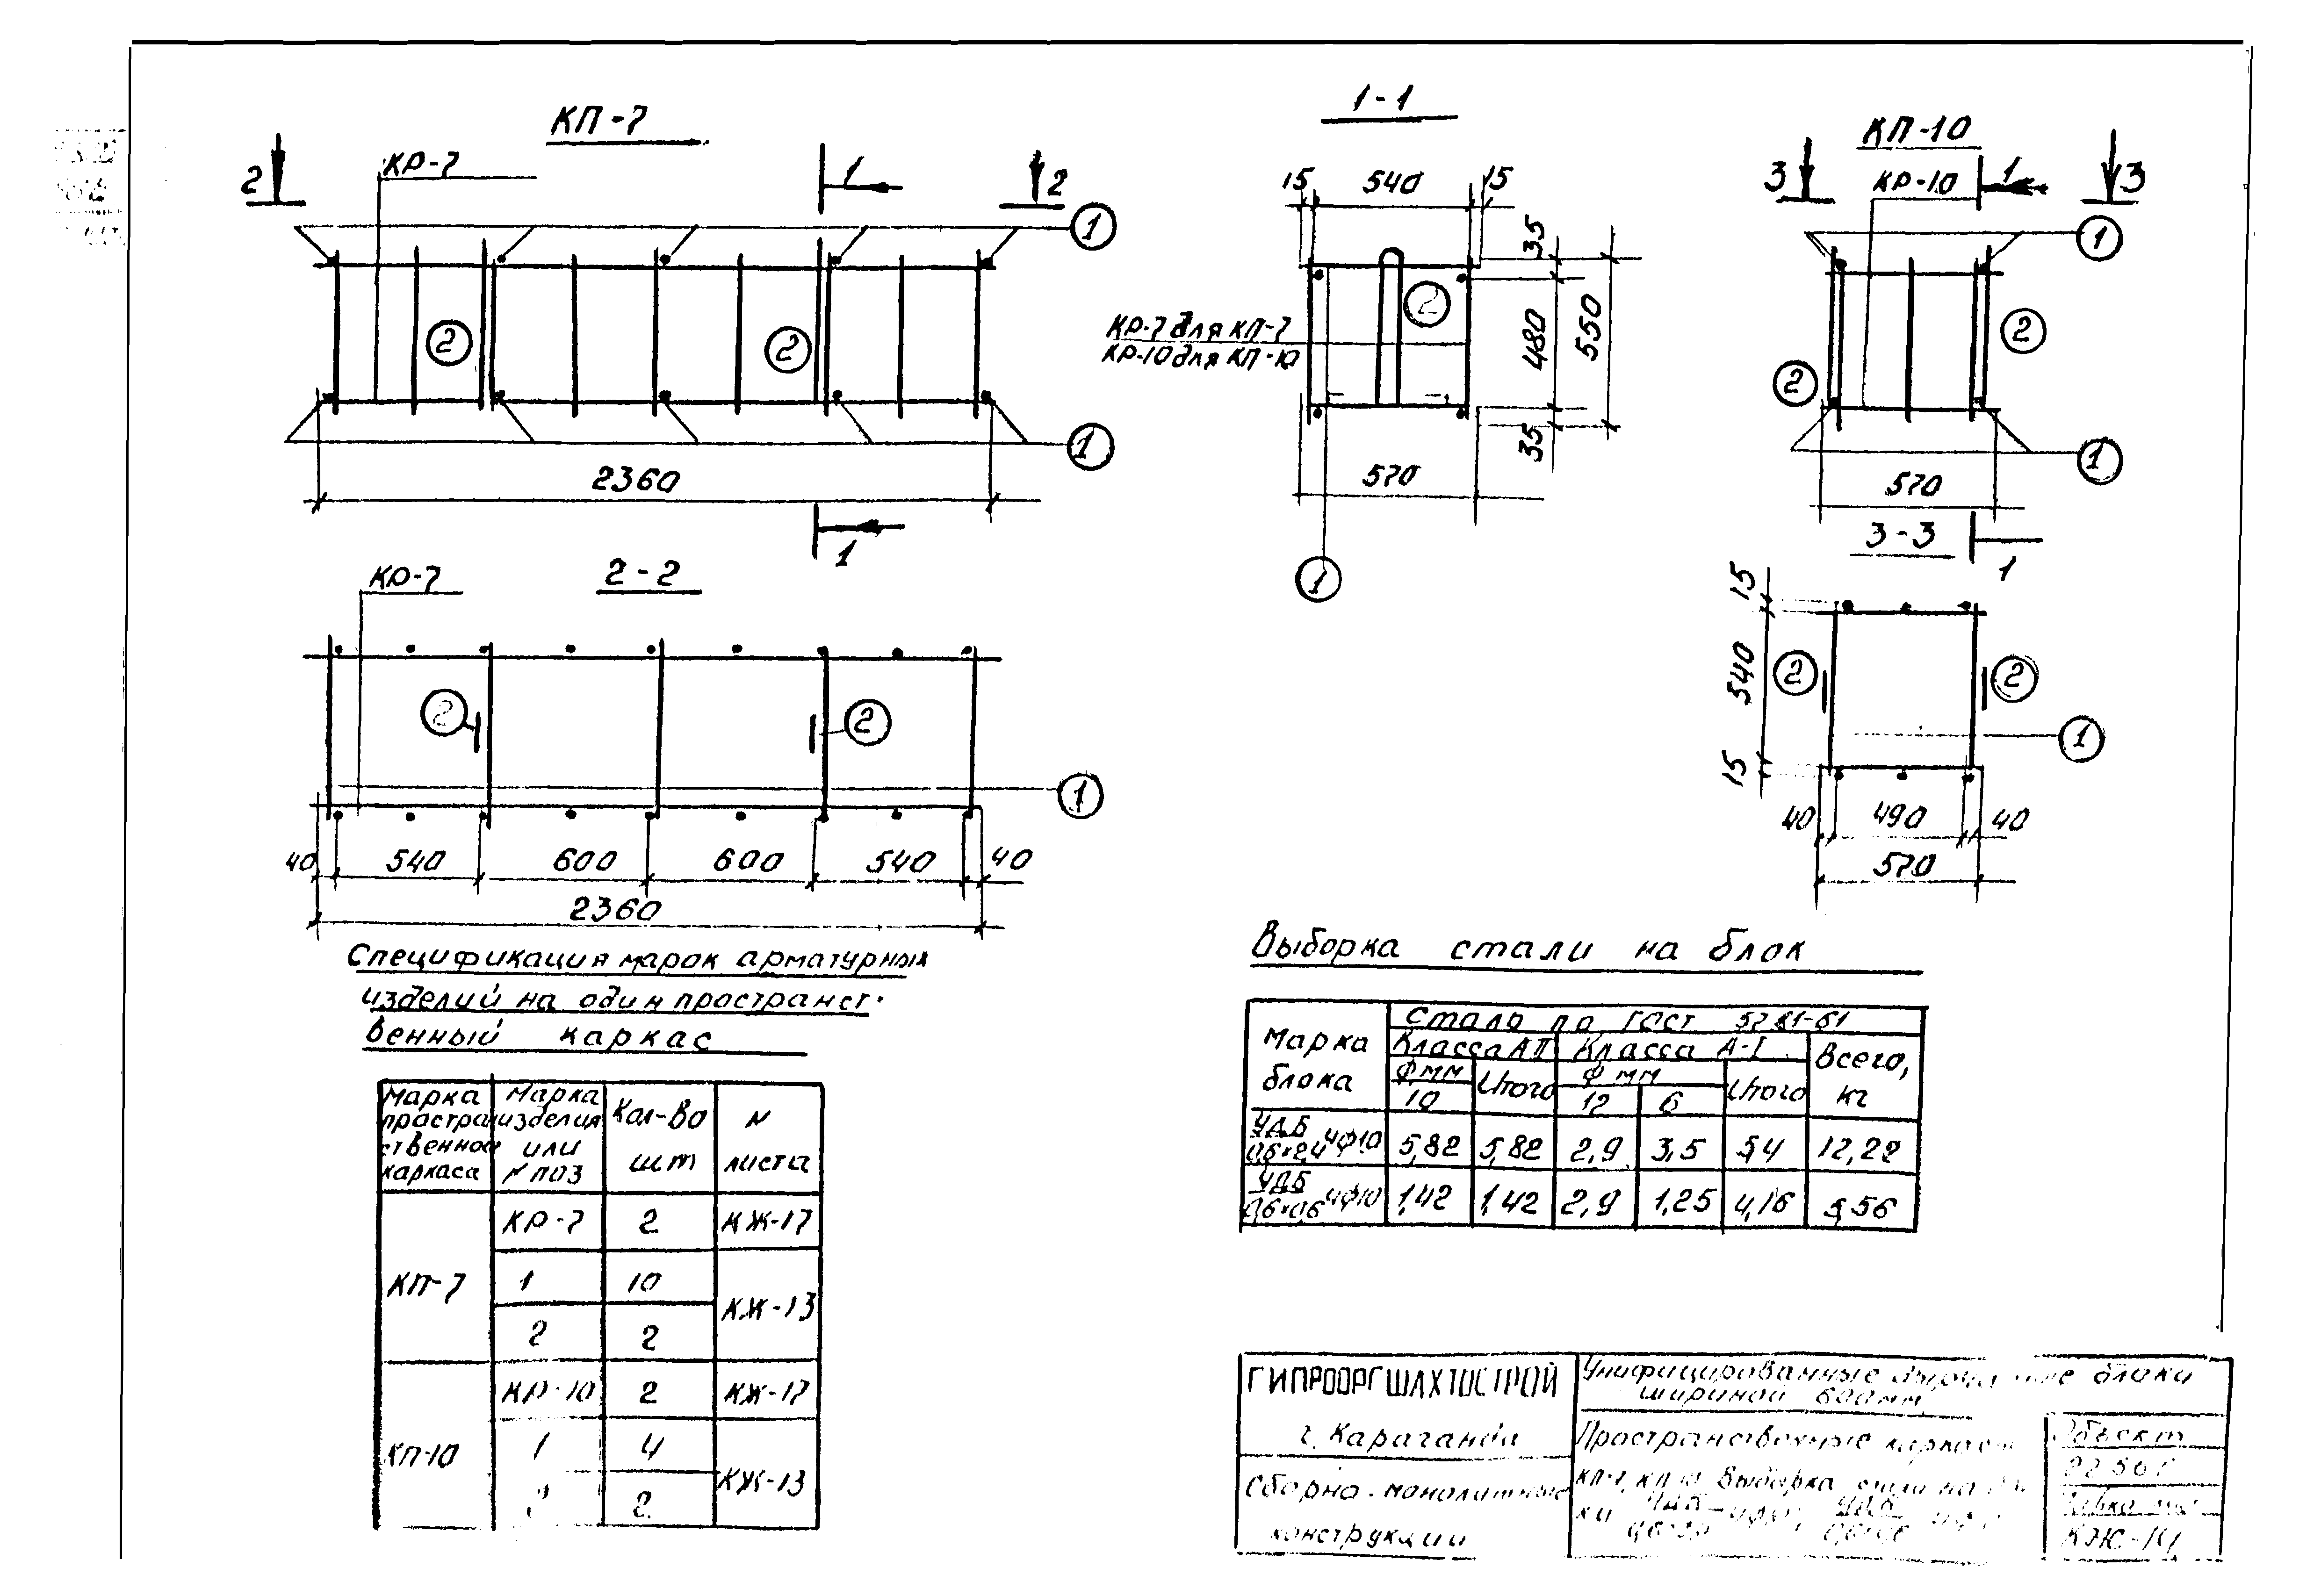 КП-7
2
КР-7
1
2
1
2
2
1
2360
1
1-1
15
540
15
35
480
550
35
2
КР-7 для КП-7
КР-10 для КП-10
570
1
КП-10
3
КР-10
1
3
1
2
2
1
570
1
2-2
КР-7
2
2
1
40
540
600
600
540
40
2360
3-3
15
540
15
2
2
1
40
490
40
570
Спецификация марок арматурных
изделий на один пространст-
венный каркас
Марка
простран
ственного
каркаса
Марка
изделия
или
N поз
Кол-во
шт
N
листа
КП-7
КР-7
2
КЖ-17
1
10
КЖ-13
2
2
КП-10
КР-10
2
КЖ-17
1
4
КЖ-13
2
2
Выборка стали на блок
Марка
блока
Сталь по ГОСТ 5781-61
Класса АII
Класса А-I
Всего,
кг
Ф мм
Итого
Ф мм
Итого
10
12
6
УДБ
0,6×2,4
4Ф10
5,82
5,82
2,9
3,5
5,4
12,22
УДБ
0,6×0,6
4Ф10
1,42
1,42
2,9
1,25
4,16
5,56
ГИПРООРГШАХТОСТРОЙ
г. Караганда
Сборно-монолитные
конструкции
Унифицированные блоки
шириной 600мм
Пространственные каркасы
КП-7, КП-10 Выборка стали на
Объект
КЖ-14